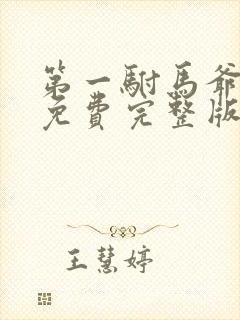 第一駙馬爺
免費完整版
王慧婷